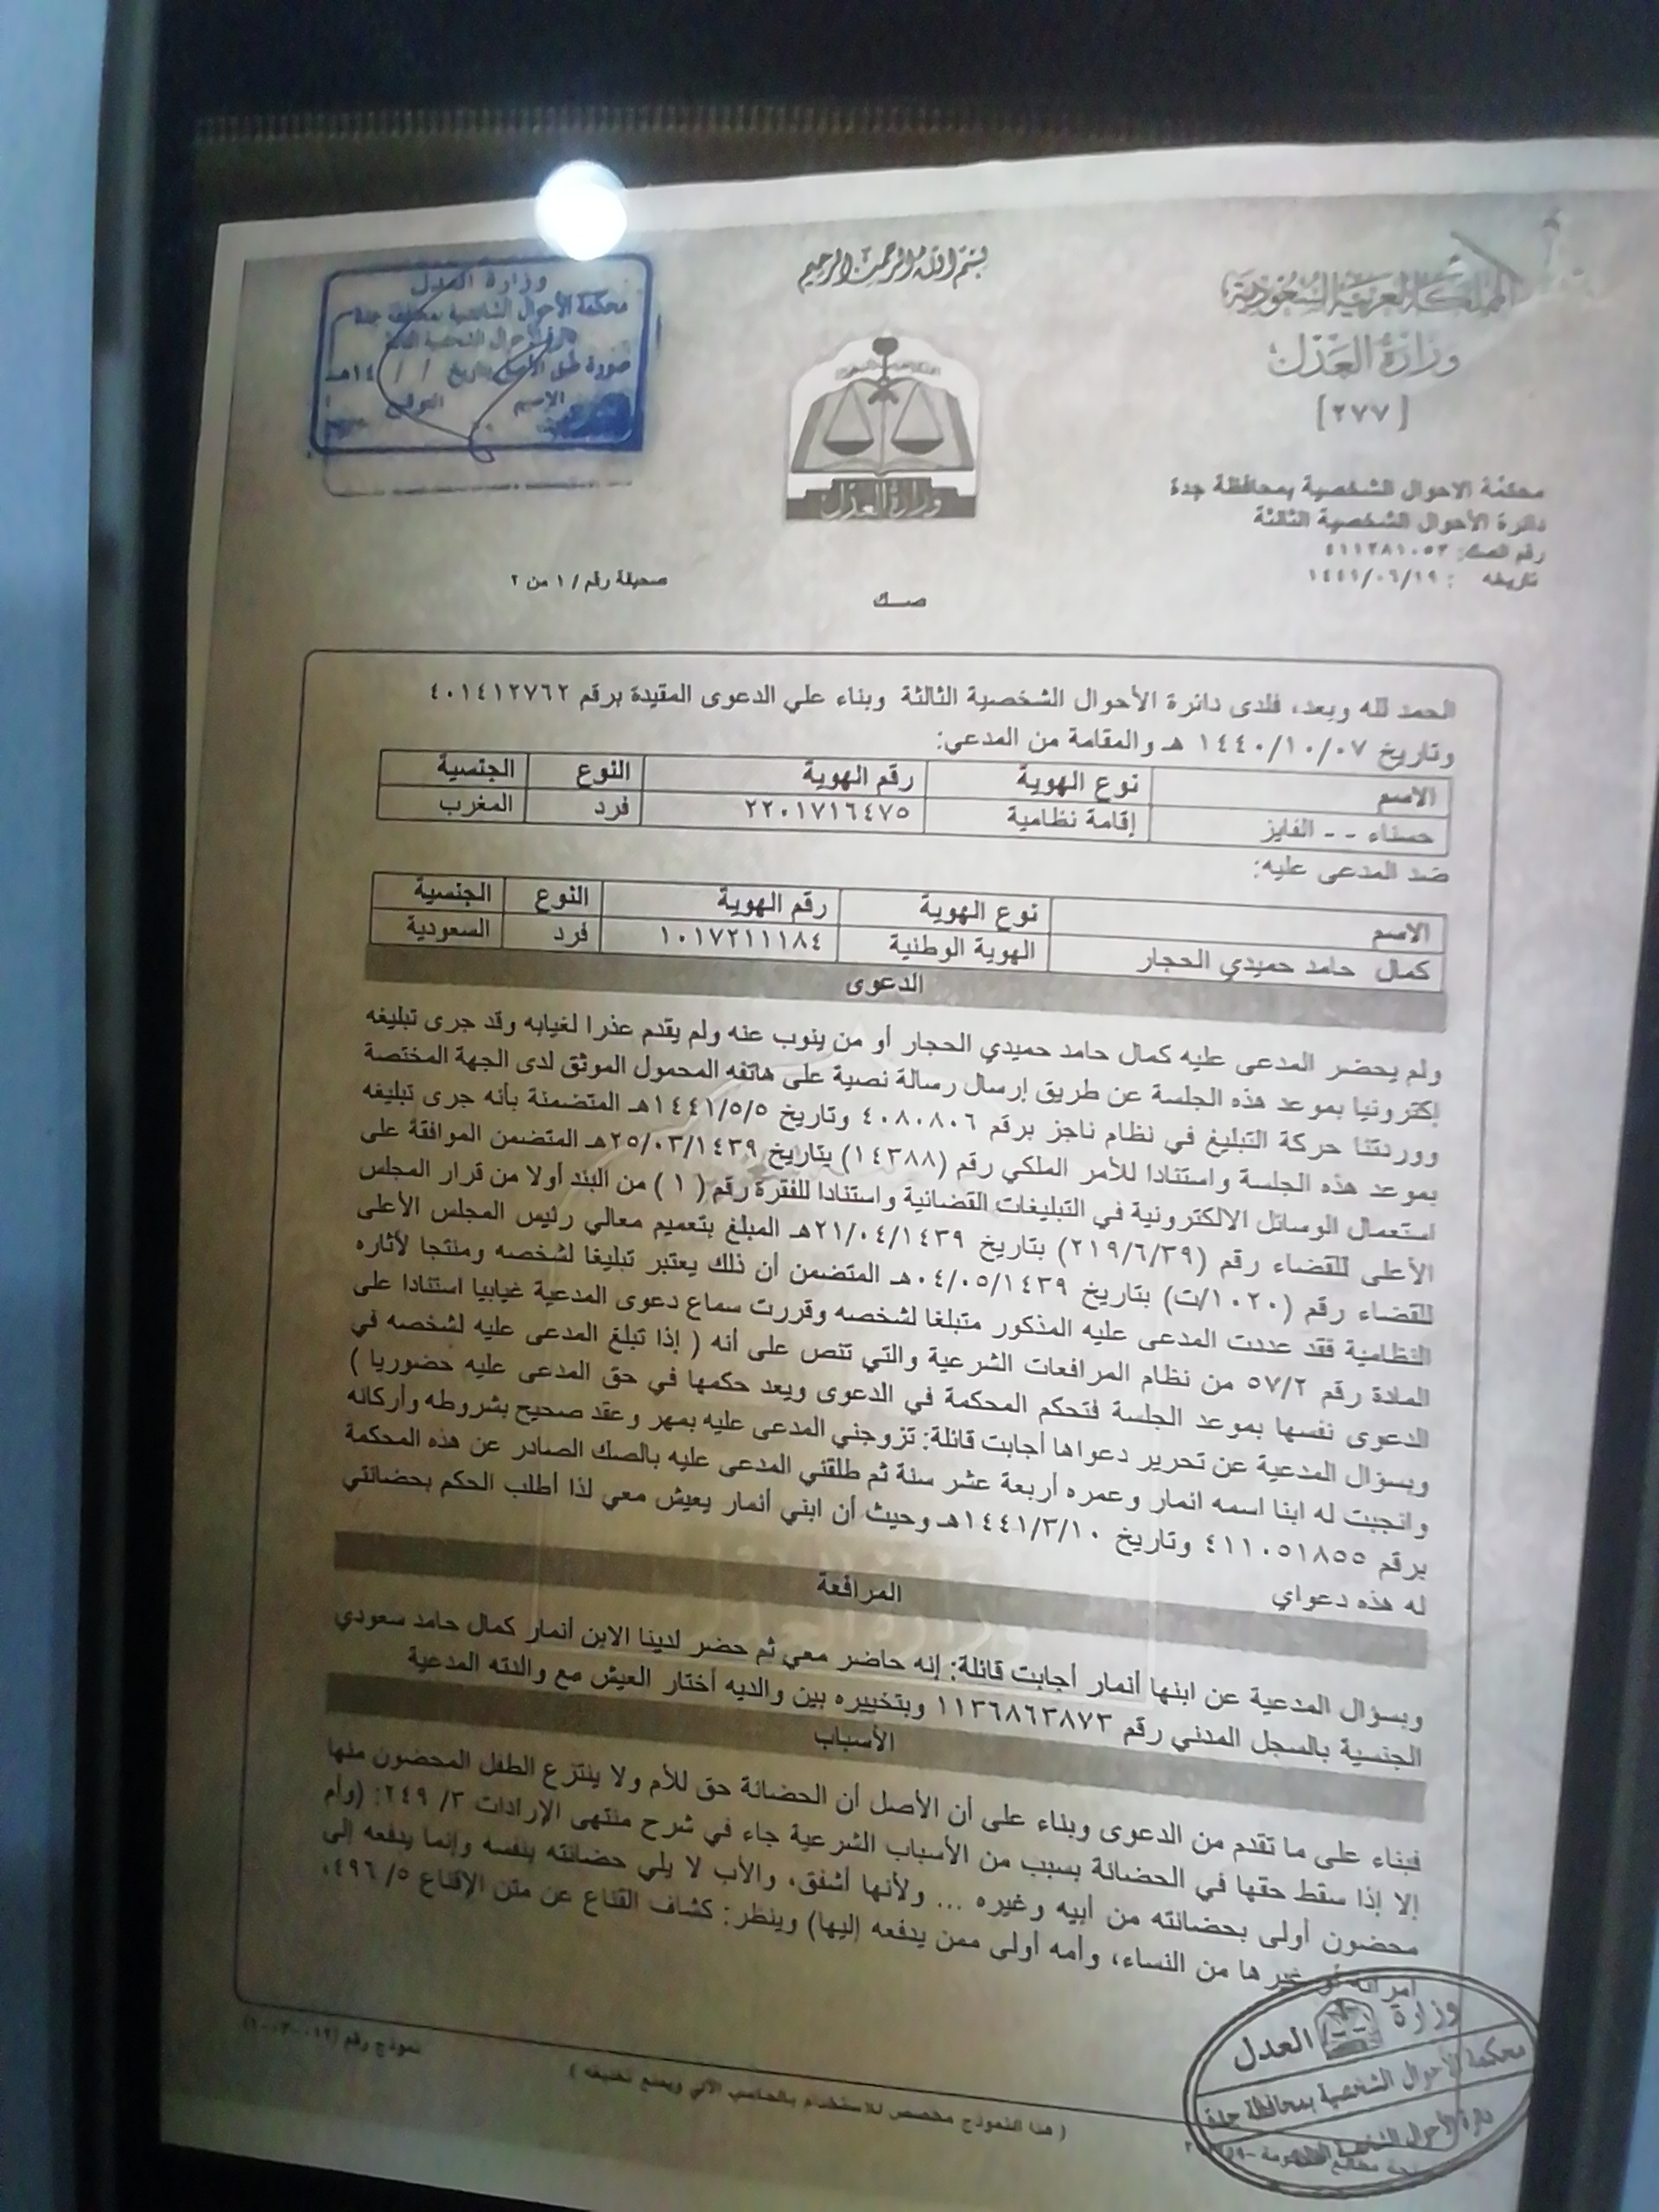 بسم الله الرحمن الرحيم
المملكة العربية السعودية
وزارة العدل
[٢٧٧]
محكمة الاحوال الشخصية بمحافظة جدة
دائرة الأحوال الشخصية الثالثة
رقم الصك: ٤١١٢٨١٠٥٣
تاريخه : ١٤٤١/٠٦/١٩
وزارة العدل
وزارة العدل
محكمة الأحوال الشخصية بمحافظة جدة
صورة طبق الأصل بتاريخ / / ١٤هـ
الاسم التوقيع
صحيفة رقم / ١ من ٢
صك
الحمد لله وبعد، فلدى دائرة الأحوال الشخصية الثالثة وبناء علي الدعوى المقيدة برقم ٤٠١٤١٢٧٦٢
وتاريخ ١٤٤٠/١٠/٠٧ هـ والمقامة من المدعي:
الاسم نوع الهوية رقم الهوية النوع الجنسية
حسناء - - الفايز إقامة نظامية ٢٢٠١٧١٦٤٧٥ فرد المغرب
ضد المدعى عليه:
الاسم نوع الهوية رقم الهوية النوع الجنسية
كمال حامد حميدي الحجار الهوية الوطنية ١٠١٧٢١١١٨٤ فرد السعودية
الدعوى
ولم يحضر المدعى عليه كمال حامد حميدي الحجار أو من ينوب عنه ولم يقدم عذرا لغيابه وقد جرى تبليغه
إكترونيا بموعد هذه الجلسة عن طريق إرسال رسالة نصية على هاتفه المحمول الموثق لدى الجهة المختصة
ووردتنا حركة التبليغ في نظام ناجز برقم ٤٠٨٠٨٠٦ وتاريخ ١٤٤١/٥/٥هـ المتضمنة بأنه جرى تبليغه
بموعد هذه الجلسة واستنادا للأمر الملكي رقم (١٤٣٨٨) بتاريخ ٢٥/٠٣/١٤٣٩هـ المتضمن الموافقة على
استعمال الوسائل الالكترونية في التبليغات القضائية واستنادا للفقرة رقم ( ١ ) من البند أولا من قرار المجلس
الأعلى للقضاء رقم (٢١٩/٦/٣٩) بتاريخ ٢١/٠٤/١٤٣٩هـ المبلغ بتعميم معالي رئيس المجلس الأعلى
للقضاء رقم (١٠٢٠/ت) بتاريخ ٠٤/٠٥/١٤٣٩هـ المتضمن أن ذلك يعتبر تبليغا لشخصه ومنتجا لآثاره
النظامية فقد عددت المدعى عليه المذكور متبلغا لشخصه وقررت سماع دعوى المدعية غيابيا استنادا على
المادة رقم ٥٧/٢ من نظام المرافعات الشرعية والتي تنص على أنه ( إذا تبلغ المدعى عليه لشخصه في
الدعوى نفسها بموعد الجلسة فتحكم المحكمة في الدعوى ويعد حكمها في حق المدعى عليه حضوريا )
وبسؤال المدعية عن تحرير دعواها أجابت قائلة: تزوجني المدعى عليه بمهر وعقد صحيح بشروطه وأركانه
وانجبت له ابنا اسمه انمار وعمره أربعة عشر سنة ثم طلقني المدعى عليه بالصك الصادر عن هذه المحكمة
برقم ٤١١٠٥١٨٥٥ وتاريخ ١٤٤١/٣/١٠هـ وحيث أن ابني أنمار يعيش معي لذا أطلب الحكم بحضانتي
له هذه دعواي
المرافعة
وبسؤال المدعية عن ابنها أنمار أجابت قائلة: إنه حاضر معي ثم حضر لدينا الابن أنمار كمال حامد سعودي
الجنسية بالسجل المدني رقم ١١٣٦٨٦٣٨٧٣ وبتخييره بين والديه أختار العيش مع والدته المدعية
الأسباب
فبناء على ما تقدم من الدعوى وبناء على أن الأصل أن الحضانة حق للأم ولا ينتزع الطفل المحضون منها
إلا إذا سقط حقها في الحضانة بسبب من الأسباب الشرعية جاء في شرح منتهى الإرادات ٣/ ٢٤٩: (وأم
محضون أولى بحضانته من أبيه وغيره ... ولأنها أشفق، والأب لا يلي حضانته بنفسه وإنما يدفعه إلى
امرأته أو غيرها من النساء، وأمه أولى ممن يدفعه إليها) وينظر: كشاف القناع عن متن الإقناع ٥/ ٤٩٦،
وزارة العدل
محكمة الأحوال الشخصية بمحافظة جدة
دائرة الأحوال الشخصية
( هذا النموذج مخصص للاستخدام بالحاسب الآلي ويمنع تغليفه )
نموذج رقم